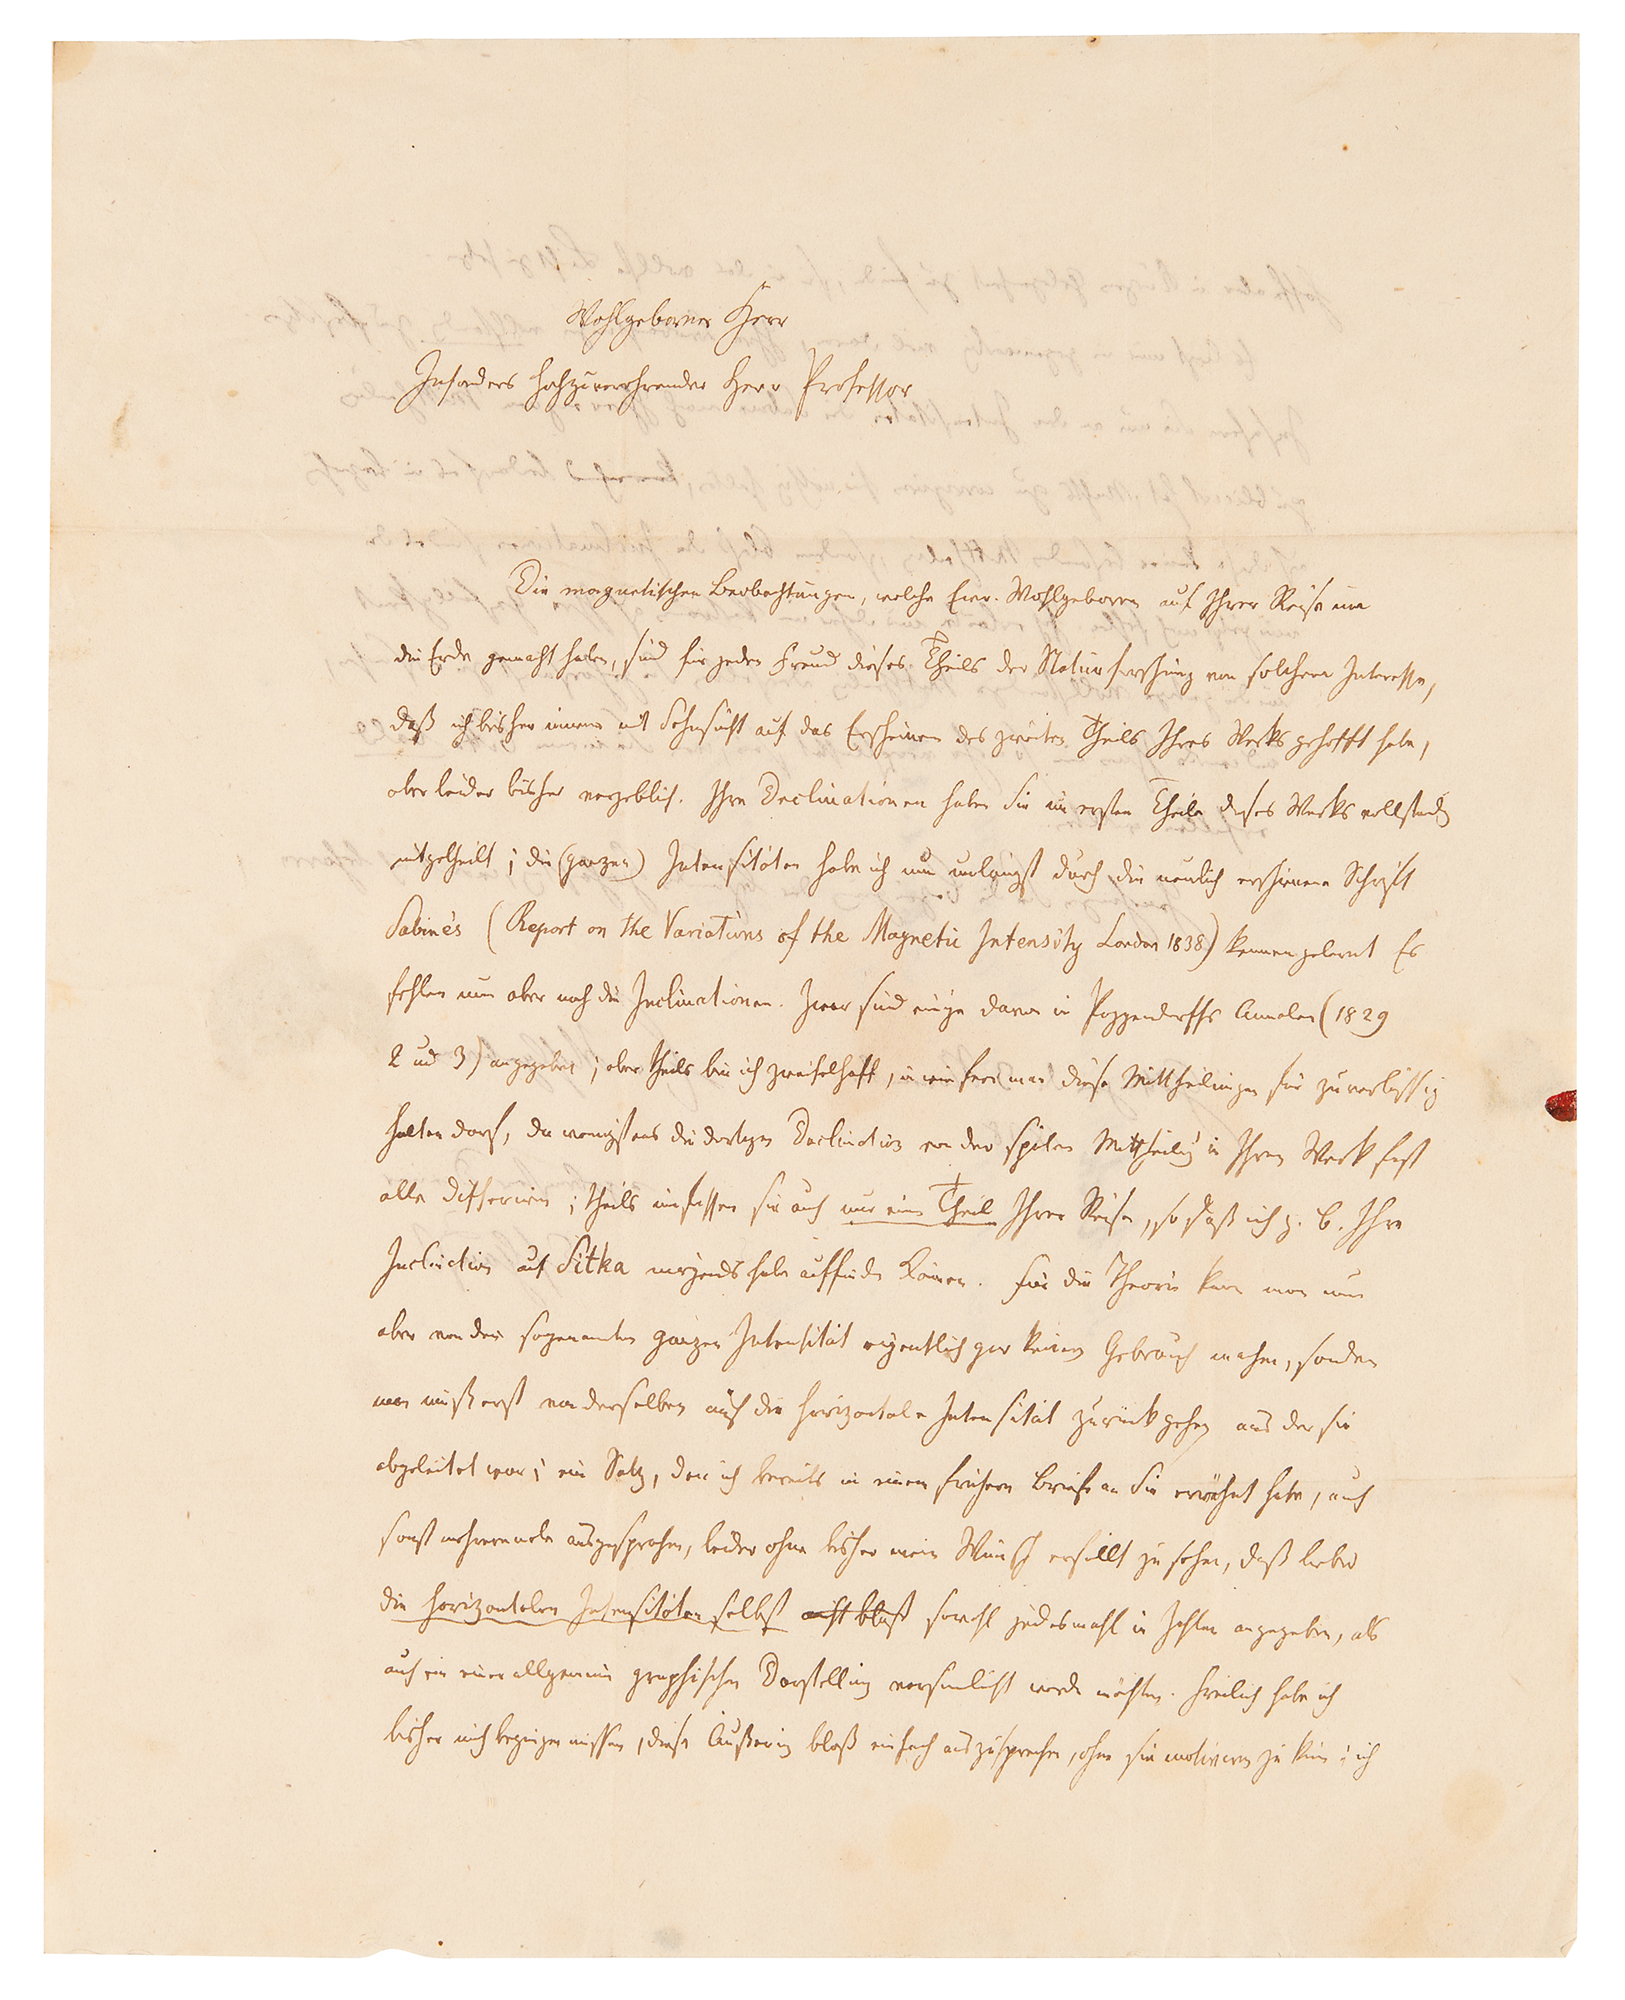 Wohlgeborner Herr
Insonders hochzuverehrender Herr Professor
Die magnetischen Beobachtungen, welche Ewr. Wohlgeboren auf Ihrer Reise um
die Erde gemacht haben, sind für jeden Freund dieses Theils der Naturforschung von solchem Interesse,
daß ich bisher immer mit Sehnsucht auf das Erscheinen des zweiten Theils Ihres Werks gehofft habe,
aber leider bisher vergeblich. Ihre Declinationen haben Sie im ersten Theile dieses Werks vollständig
mitgetheilt; die (ganzen) Intensitäten habe ich nun unlängst durch die neulich erschienene Schrift
Sabine's (Report on the Variations of the Magnetic Intensity London 1838) kennen gelernt Es
fehlen nun aber noch die Inclinationen. Zwar sind einige davon in Poggendorffs Annalen (1829
2 und 3) angegeben; aber theils bin ich zweifelhaft, in wie fern man diese Mittheilungen für zuverlässig
halten darf, da wenigstens die dortigen Declination von der spätern Mittheilung in Ihrem Werk fast
alle differiren; theils umfassen sie auch nur einen Theil Ihrer Reise, so daß ich z. B. Ihre
Inclination auf Sitka nirgends habe auffinden können. Für die Theorie kann man nun
aber von der sogenannten ganzen Intensität eigentlich gar keinen Gebrauch machen, sondern
man muß erst von derselben auf die horizontale Intensität zurückgehen aus der sie
abgeleitet war; ein Satz, den ich bereits in einem frühern Briefe an Sie erwähnt habe, auch
sonst mehreremale ausgesprochen, leider ohne bisher meinen Wunsch erfüllt zu sehen, daß lieber
die horizontalen Intensitäten selbst nicht bloß sowohl jedesmahl in Zahlen angegeben, als
auch in einer allgemeinen graphischen Darstellung versinnlicht werden möchten. Freilich habe ich
bisher mich begnügen müssen, diese Äußerung bloß einfach auszusprechen, ohne sie motiviren zu können; ich